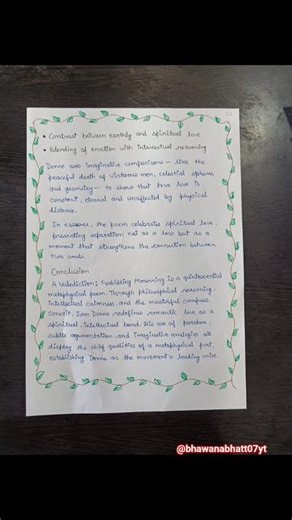 • Contrast between earthly and spiritual love
• Blending of emotion with intellectual reasoning
Donne uses imaginative comparisons— like the
peaceful death of virtuous men, celestial spheres
and geometry— to show that true love is
constant, eternal and unaffected by physical
distance.
In essence, the poem celebrates spiritual love,
presenting separation not as a loss but as a
moment that strengthens the connection between
two souls.
Conclusion
A Valediction: Forbidding Mourning is a quintessential
metaphysical poem. Through philosophical reasoning,
intellectual calmness and the masterful compass
conceit, John Donne redefines romantic love as a
spiritual, intellectual bond. His use of paradox,
subtle argumentation and imaginative analogies all
display the chief qualities of a metaphysical poet,
establishing Donne as the movement's leading voice.
@bhawanabhatt07yt